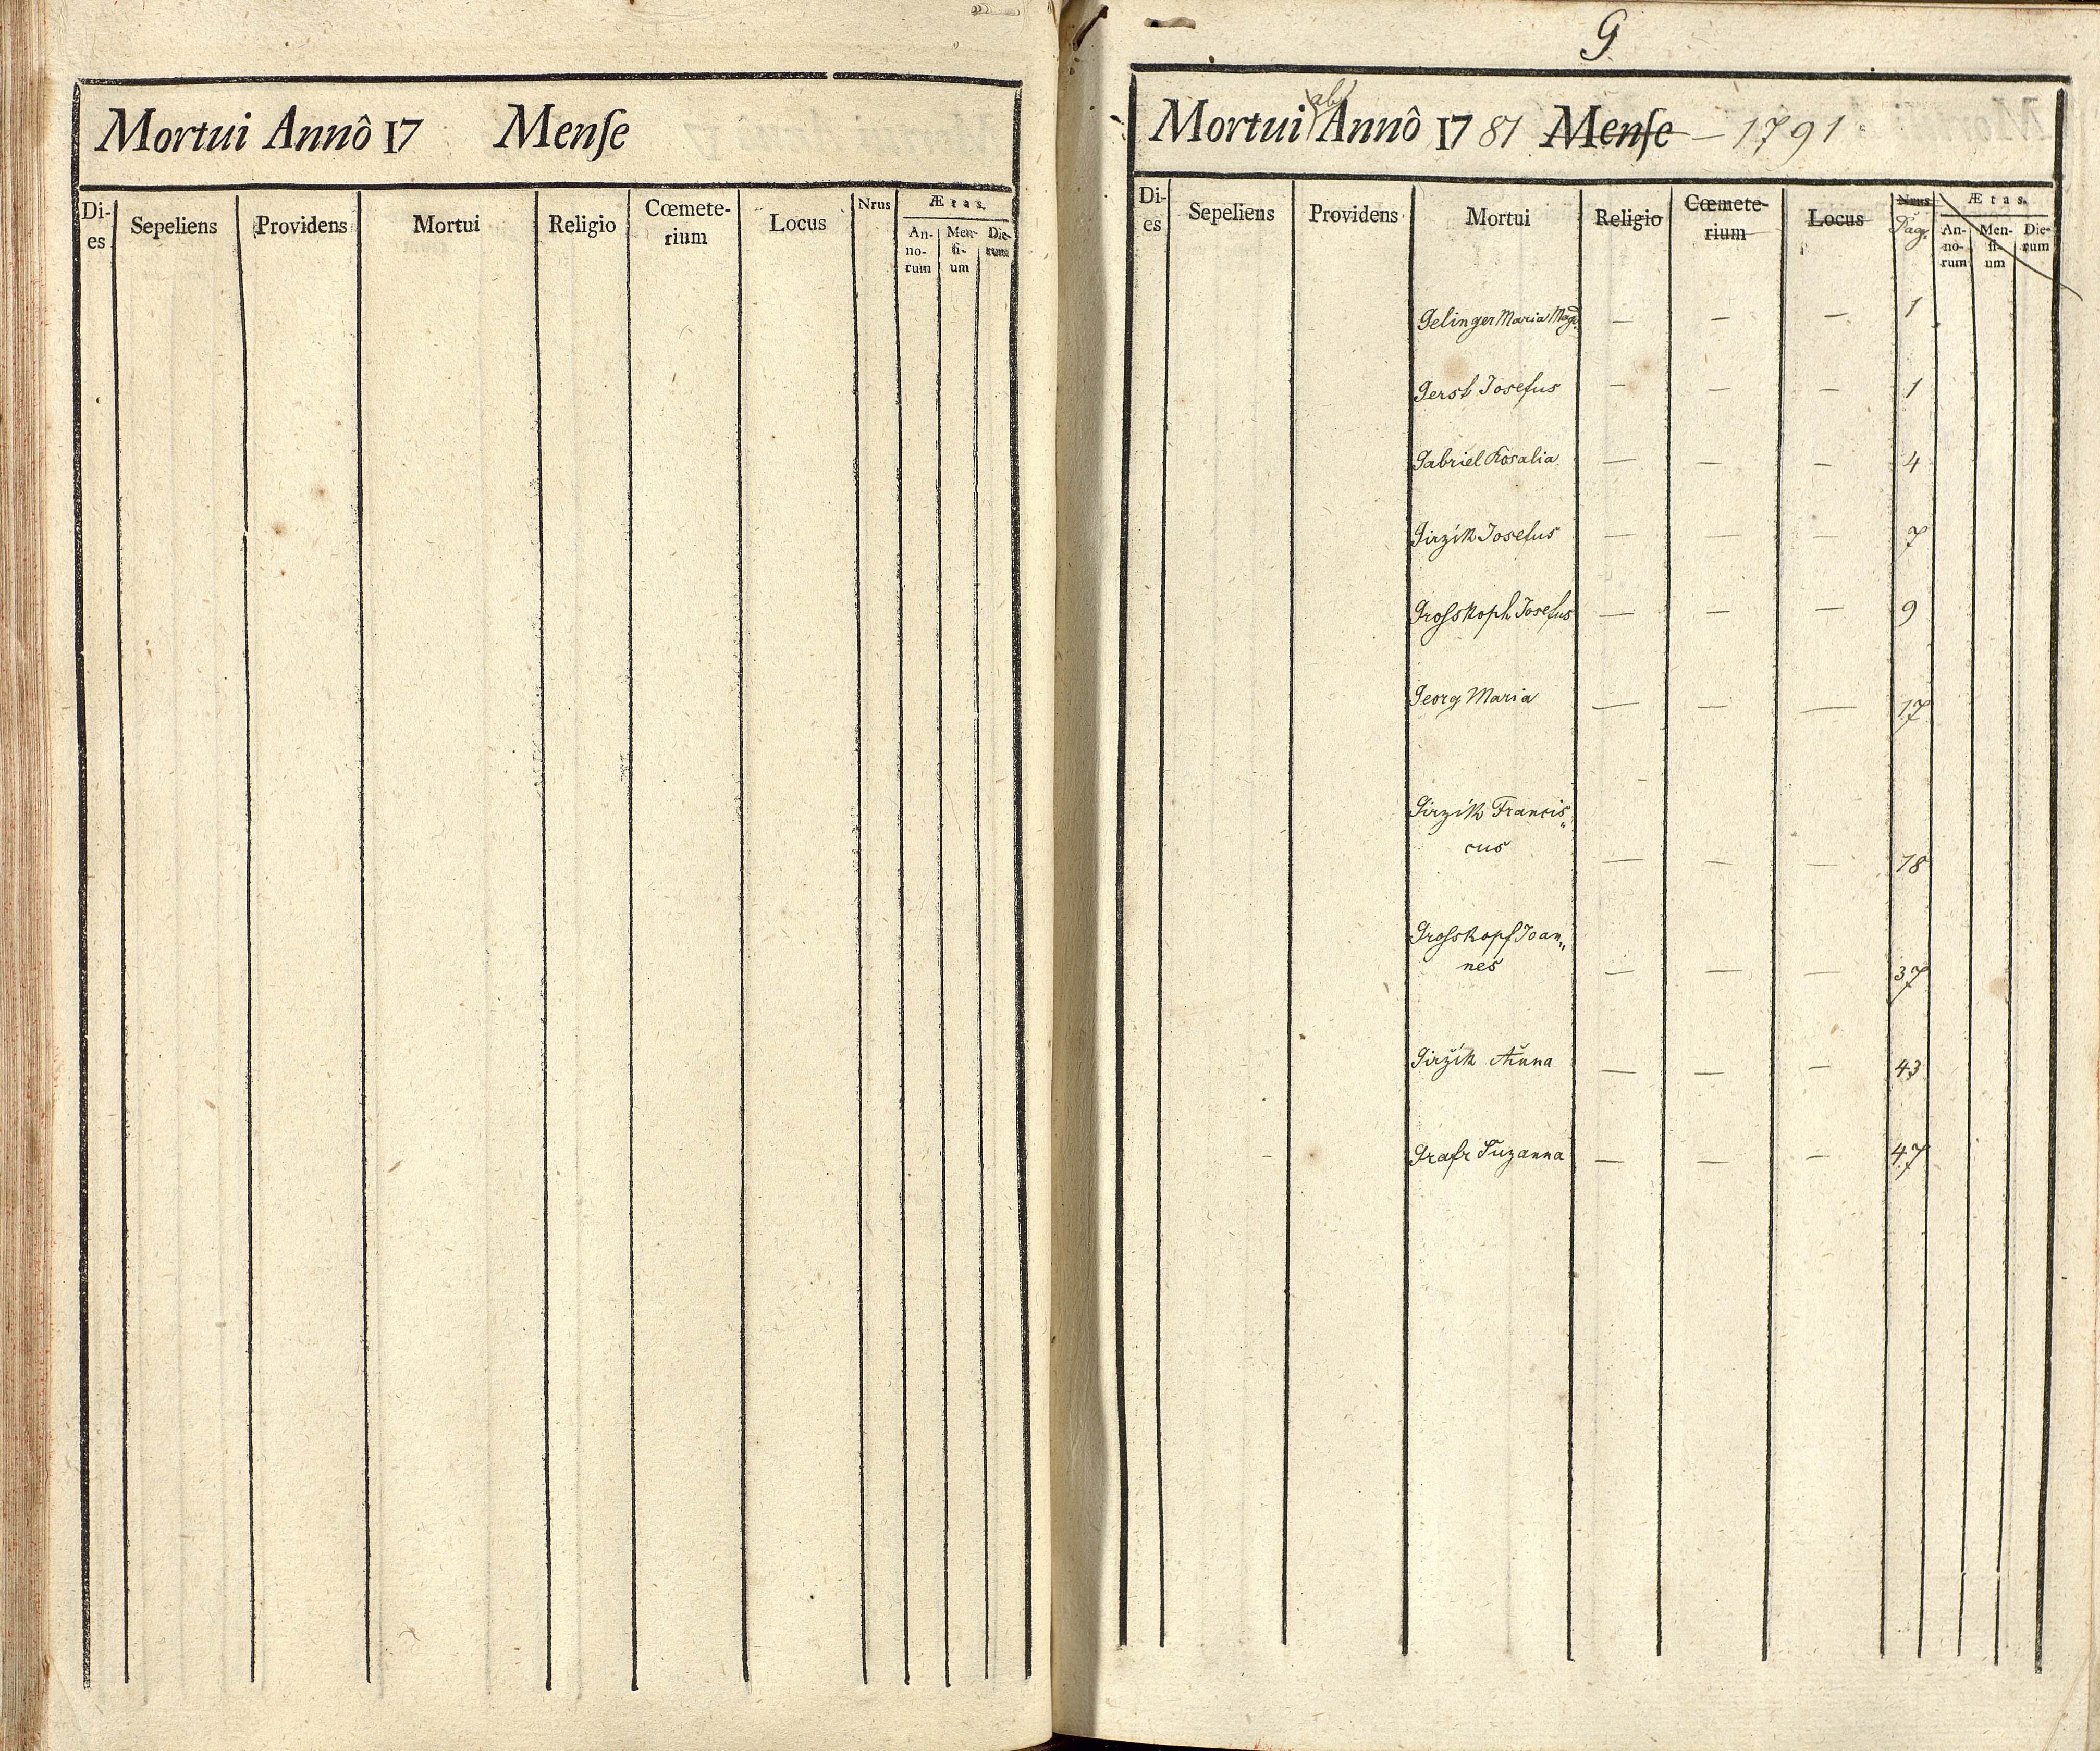 Mortui Annô 17 Menſe
Di-
es
Sepeliens
Providens
Mortui
Religio
Cœmete-
rium
Locus
Nrus
Ætas.
An-
no-
rum
Men-
ſi-
um
Die-
rum
G
Mortui ab Annô 1781 Menſe – 1791
Di-
es
Sepeliens
Providens
Mortui
Religio
Cœmete-
rium
Locus
Nrus
Pag.
Ætas.
An-
no-
rum
Men-
ſi-
um
Die-
rum
Gelinger Maria Magd. — — — 1
Gerst Josefus — — — 1
Gabriel Rosalia — — — 4
Girzík Josefus — — — 7
Groſskoph Josefus — — — 9
Georg Maria — — — 17
Girzík Francis„
cus — — — 18
Groſskopf Joan„
nes — — — 37
Giržík Anna — — — 43
Grafr Suzanna — — — 47